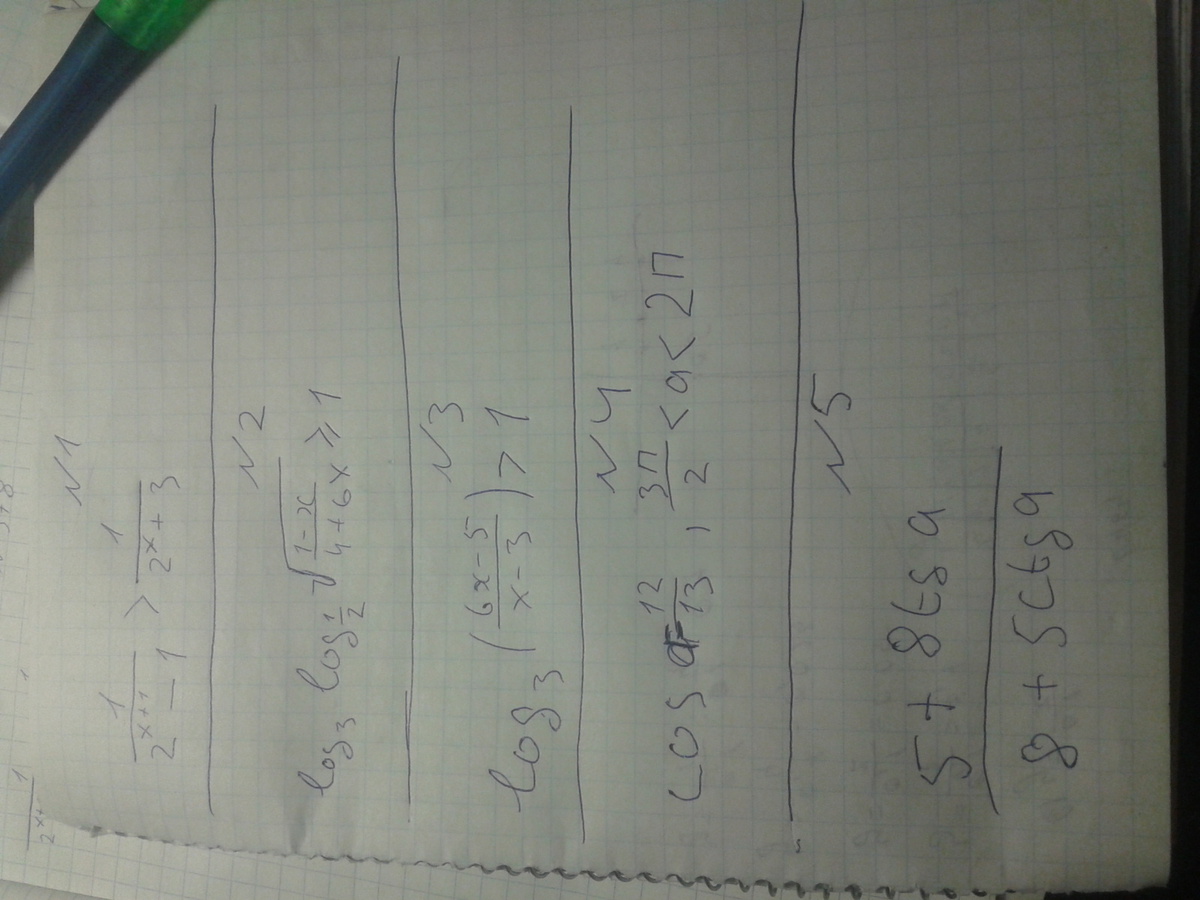 N1
1/(2^(x+1) - 1) > 1/(2^x + 3)
N2
log₃ log_(1/2) √((1-x)/(4+6x)) ≥ 1
N3
log₃ ((6x-5)/(x-3)) > 1
N4
cos a = 12/13, 3π/2 < a < 2π
N5
5 + 8tg a
8 + 5ctg a